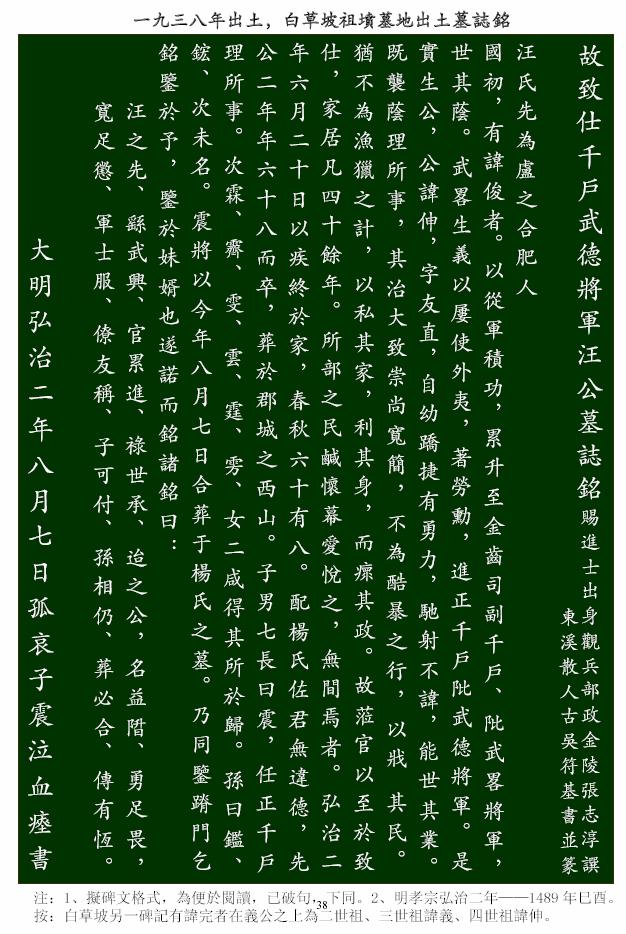 一九三八年出土，白草坡祖墳墓地出土墓誌銘
故致仕千戶武德將軍汪公墓誌銘
賜進士出身觀兵部政金陵張志淳譔
東溪散人古吳符基書並篆
汪氏先為盧之合肥人
國初，有諱俊者。以從軍積功，累升至金齒司副千戶、阰武畧將軍，
世其蔭。武畧生義以屢使外夷，著勞勳，進正千戶阰武德將軍。是
實生公，公諱伸，字友直，自幼蹻捷有勇力，馳射不諱，能世其業。
既襲蔭理所事，其治大致崇尚寬簡，不為酷暴之行，以戕 其民。
猶不為漁獵之計，以私其家，利其身，而瘝其政。故蒞官以至於致
仕，家居凡四十餘年。所部之民鹹懷幕愛悅之，無間焉者。弘治二
年六月二十日以疾終於家，春秋六十有八。配楊氏佐君無違德，先
公二年年六十八而卒，葬於郡城之西山。子男七長曰震，任正千戶
理所事。次霖、霽、雯、雲、霆、雱、女二咸得其所於歸。孫曰鑑、
鋐、次未名。震將以今年八月七日合葬于楊氏之墓。乃同鑒躋門乞
銘鑒於予，鑒於妹婿也遂諾而銘諸銘曰：
汪之先、繇武興、官累進、祿世承、迨之公，名益陞、勇足畏，
寬足懲、軍士服、僚友稱、子可付、孫相仍、葬必合、傳有恆。
大明弘治二年八月七日孤哀子震泣血瘞書
注：1、擬碑文格式，為便於閱讀，己破句，下同。2、明孝宗弘治二年——1489 年巳酉。
38
按：白草坡另一碑記有諱完者在義公之上為二世祖、三世祖諱義、四世祖諱伸。